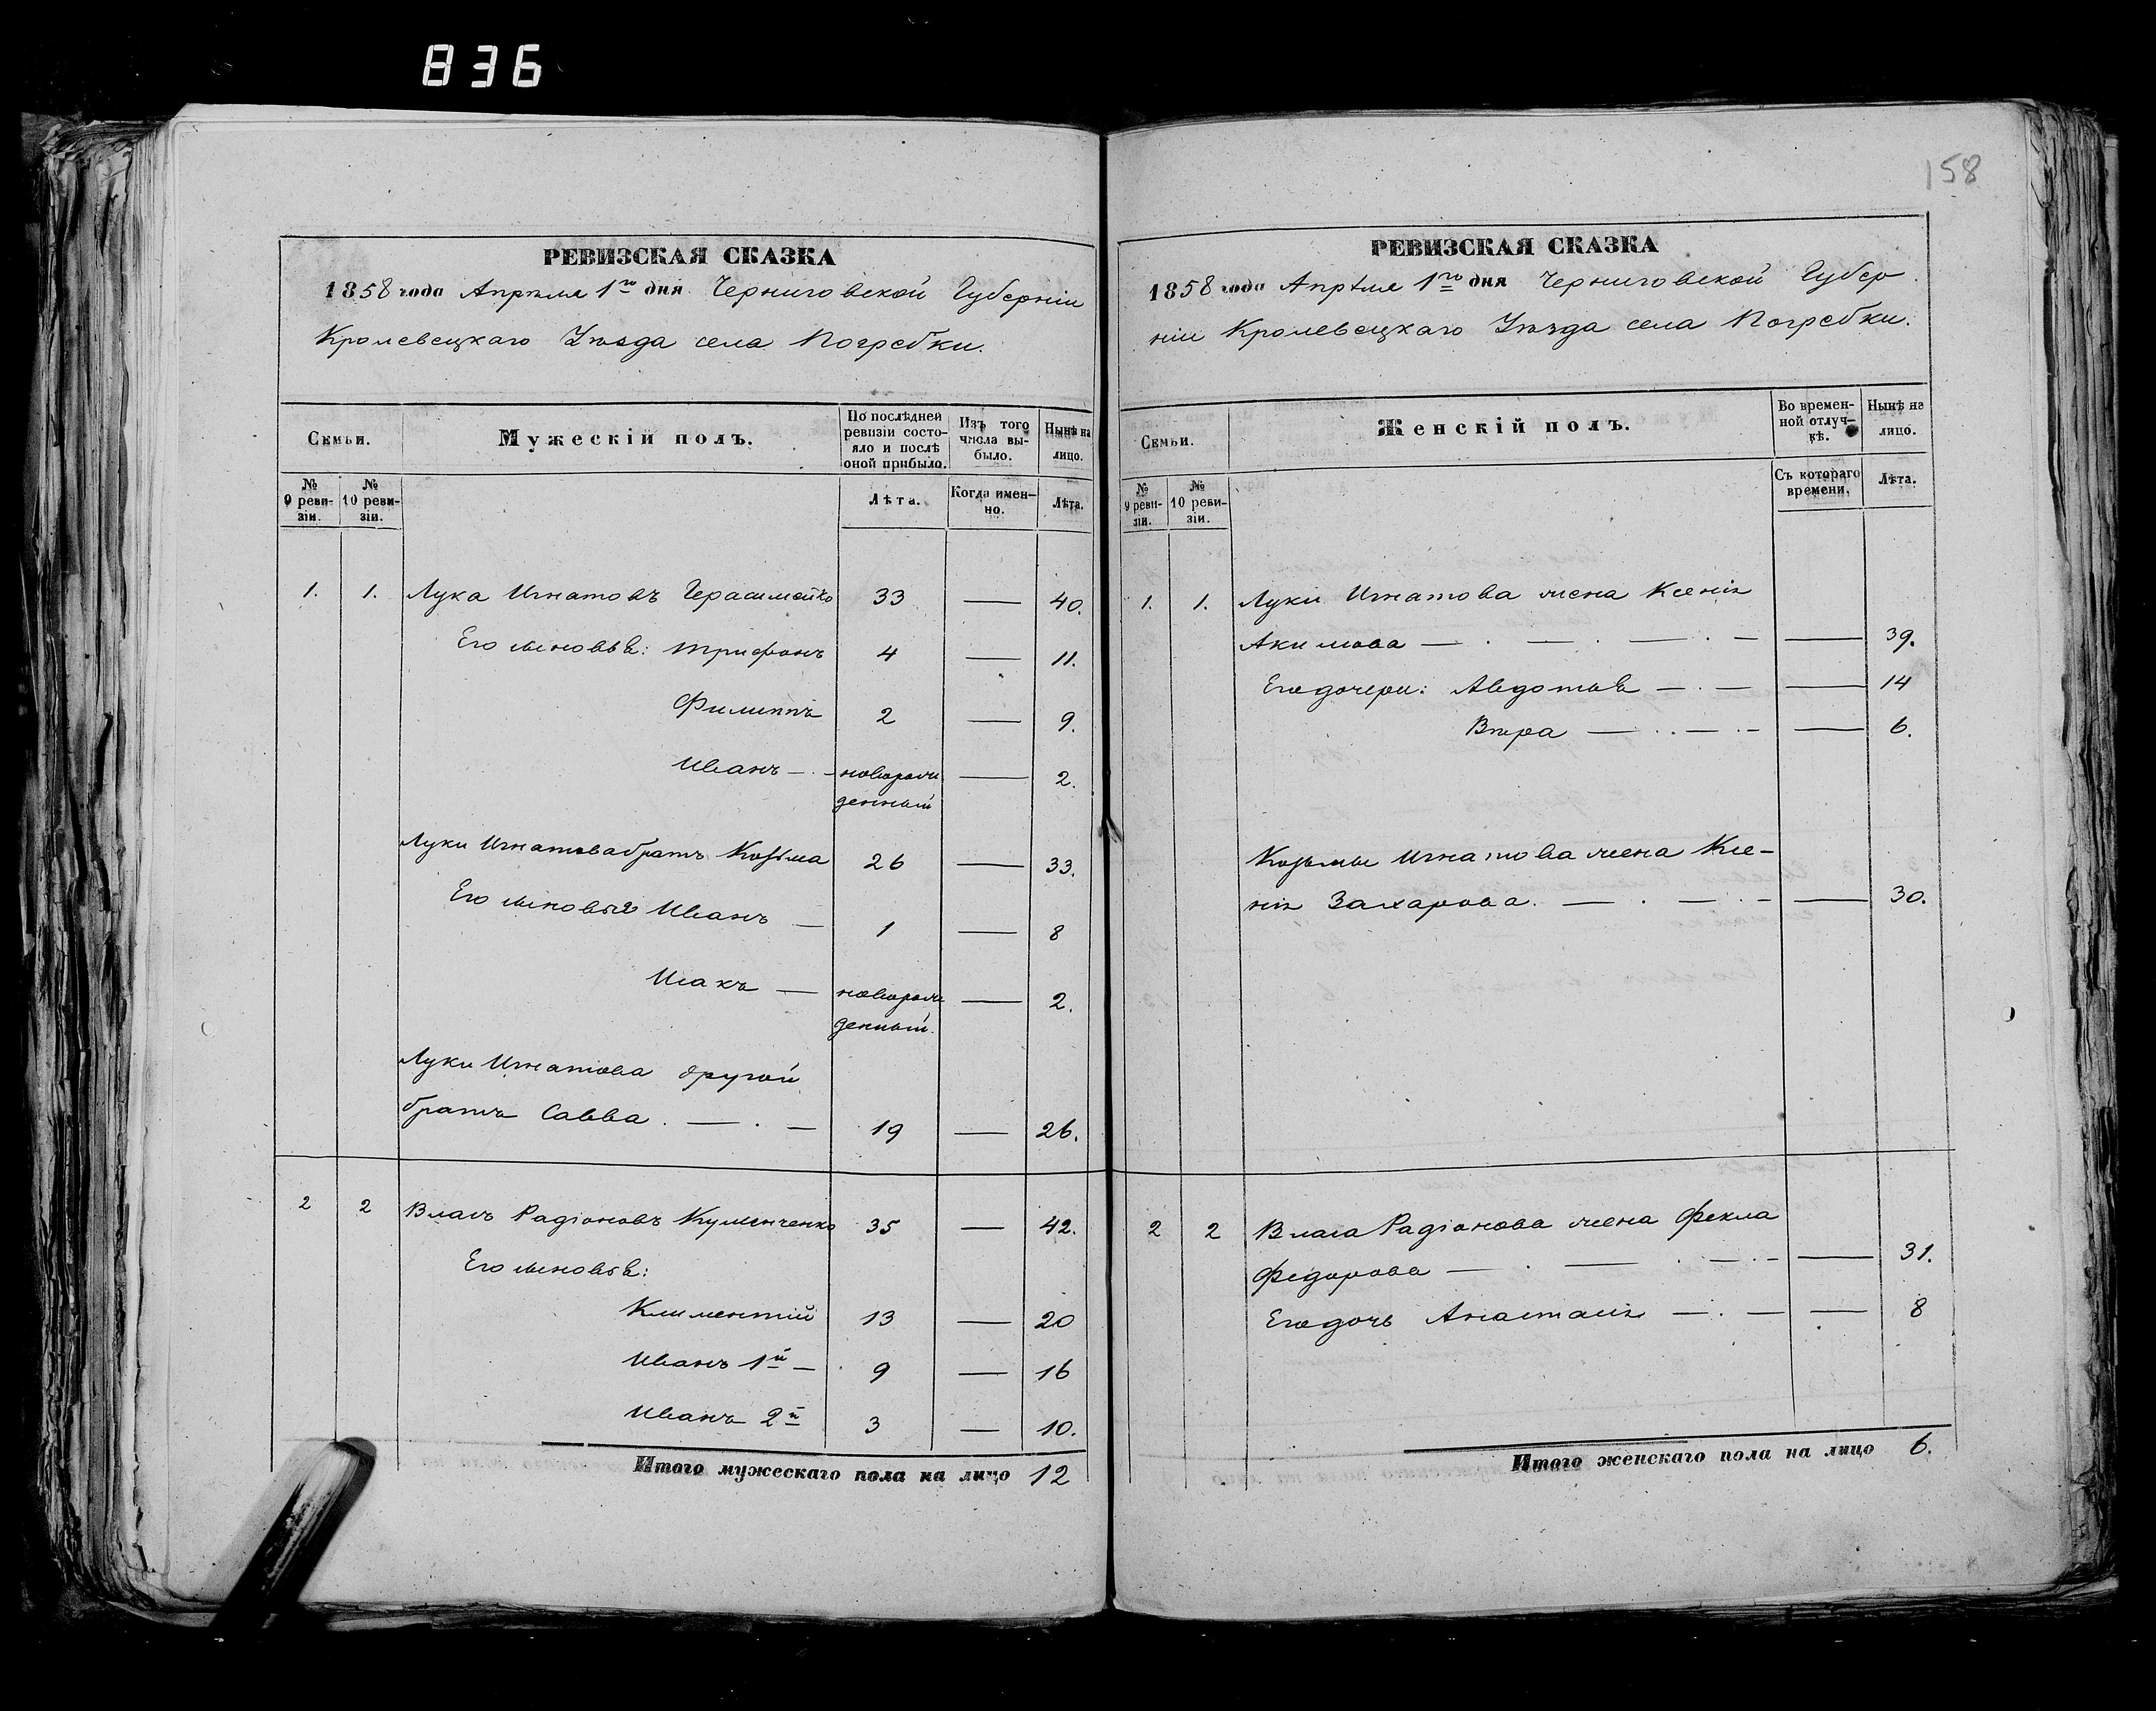 836
158
РЕВИЗСКАЯ СКАЗКА
1858 года Апрѣля 1го дня Черниговской Губерніи
Кролевецкаго Уѣзда села Погребки.
Семьи.
Мужескій полъ.
По послѣдней ревизіи состояло и послѣ оной прибыло.
Изъ того числа выбыло.
Нынѣ на лицо.
№ 9 ревизіи.
№ 10 ревизіи.
Лѣта.
Когда именно.
Лѣта.
1. 1. Лука Игнатовъ Герасименко 33 — 40.
Его сыновья: Трифонъ 4 — 11.
Филиппъ 2 — 9.
Иванъ — новорож — 2.
денный
Луки Игнатова братъ Козьма 26 — 33.
Его сыновья Иванъ — 1 — 8
Исакъ — новорож — 2.
денный.
Луки Игнатова другой
братъ Савва . — . — 19 — 26.
2 2 Власъ Радіоновъ 35 — 42.
Его сыновья:
Климентій 13 — 20
Иванъ 1й — 9 — 16
Иванъ 2й 3 — 10.
Итого мужескаго пола на лицо 12
РЕВИЗСКАЯ СКАЗКА
1858 года Апрѣля 1го дня Черниговской Губер
ніи Кролевецкаго Уѣзда села Погребки.
Семьи.
Женскій полъ.
Во временной отлучкѣ.
Нынѣ на лицо.
№ 9 ревизіи.
№ 10 ревизіи.
Съ котораго времени.
Лѣта.
1. 1. Луки Игнатова жена Ксенія
Акимова — . — . — . — — 39.
Его дочери: Авдотья — . — — 14
Вѣра — . . — . — — 6.
Козьмы Игнатова жена Ксе-
нія Захарова. — . — . — — 30.
2 2 Власа Радіонова жена Фекла
Федорова — . — . — . — — 31.
Его дочь Анастасія — . — — 8
Итого женскаго пола на лицо 6.